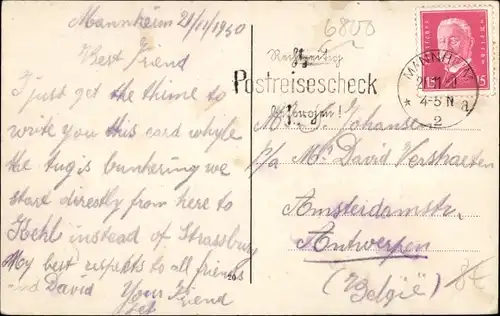 Mannheim 21/11/1930
Best Friend
I just get the thime to
write you this card whyle
the tug is bunkering we
start directly from here to
Kehl instead of Strassburg
My best respects to all friends
and David Your Friend
6800
Rechtzeitig
Postreisescheck
besorgen!
MANNHEM
4-5 N
* 2 a
15 15
Mr. J. Johansen
p/a Mr David Verstraeten
Amsterdamstr.
Antwerpen
(België)
8€